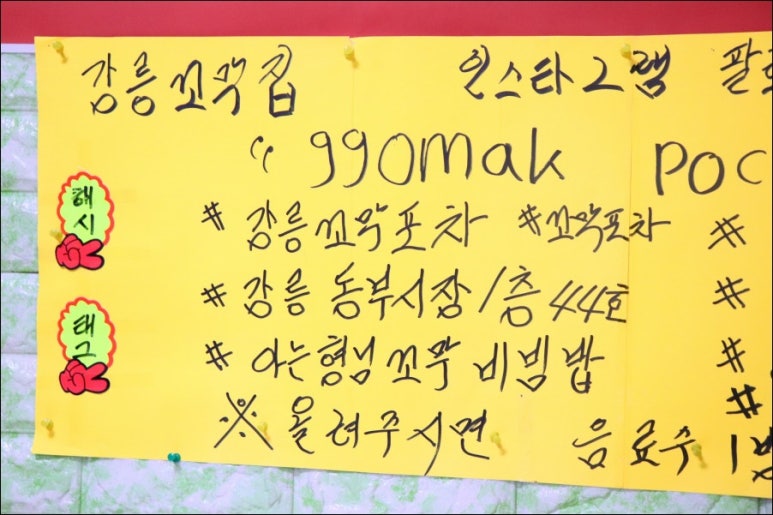 강릉꼬막집 인스타그램
" ggomak poc
해시
# 강릉꼬막포차 #꼬막포차 #
# 강릉 동부시장 1층 44호 #
태그
# 아는형님 꼬막 비빔밥 #
#
※ 올려주시면 음료수 1병